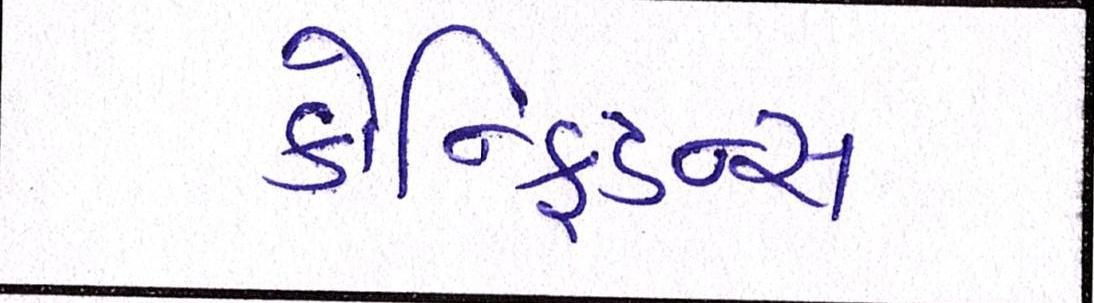 કોન્ફિડન્સ